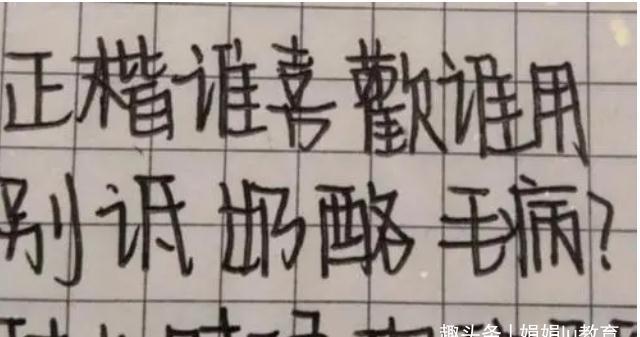 正楷谁喜歡谁用
别诋奶酪毛病?
趣头条 | 娟娟lu教育